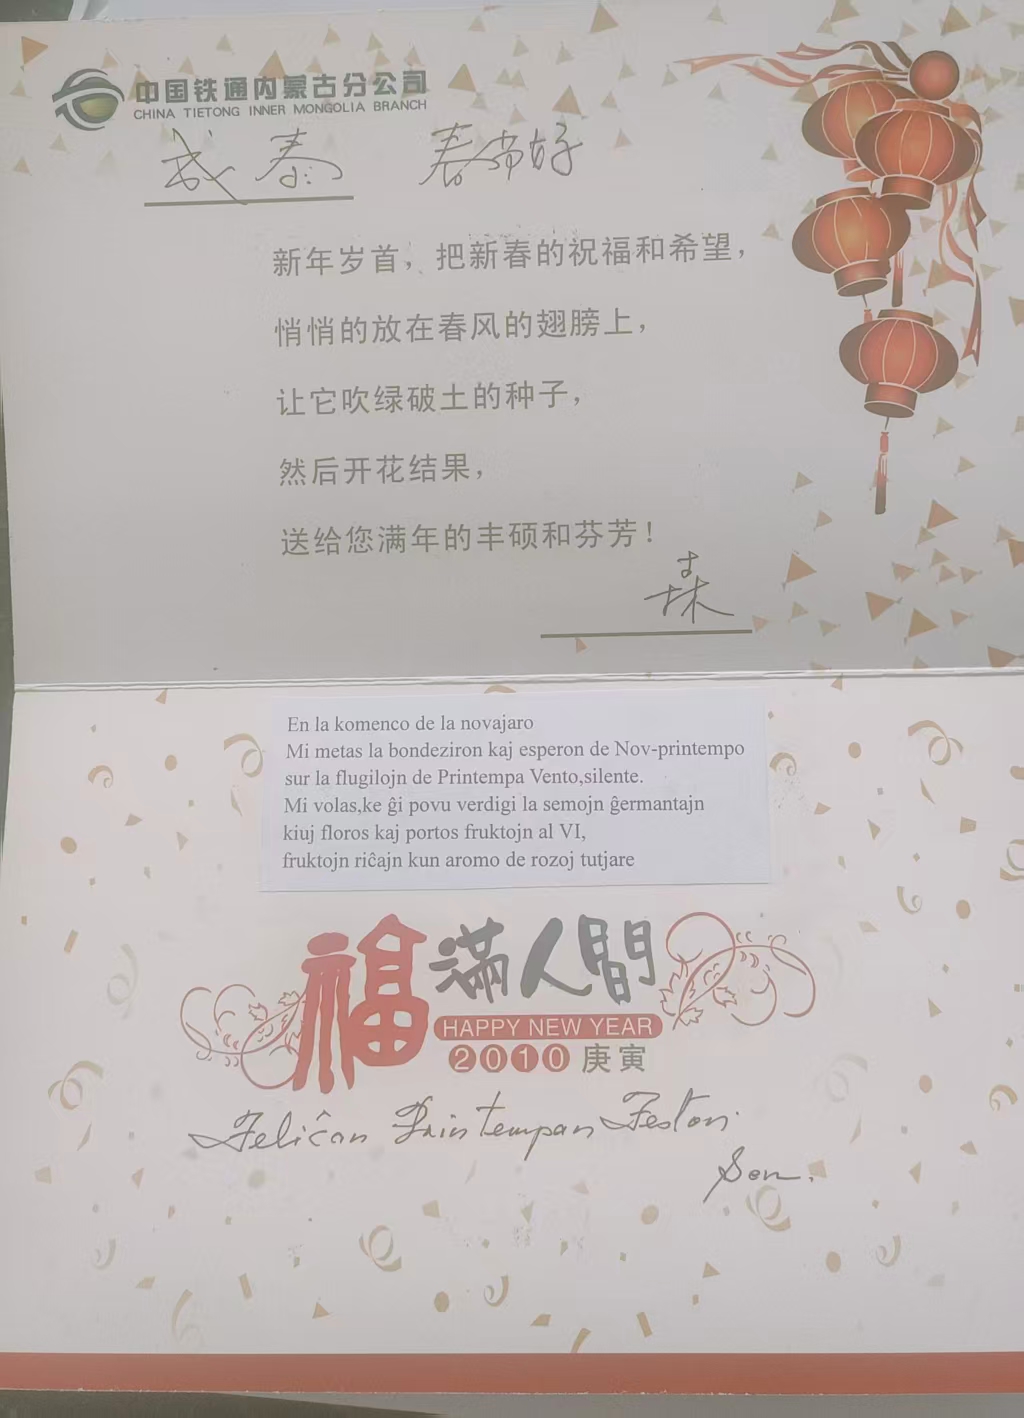 中国铁通内蒙古分公司
CHINA TIETONG INNER MONGOLIA BRANCH
成泰 春节好
新年岁首，把新春的祝福和希望，
悄悄的放在春风的翅膀上，
让它吹绿破土的种子，
然后开花结果，
送给您满年的丰硕和芬芳！
En la komenco de la novajaro
Mi metas la bondeziron kaj esperon de Nov-printempo
sur la flugilojn de Printempa Vento,silente.
Mi volas,ke ĝi povu verdigi la semojn ĝermantajn
kiuj floros kaj portos fruktojn al VI,
fruktojn riĉajn kun aromo de rozoj tutjare
福满人間
HAPPY NEW YEAR
2010 庚寅
Feliĉan Printempan Feston
Sen.